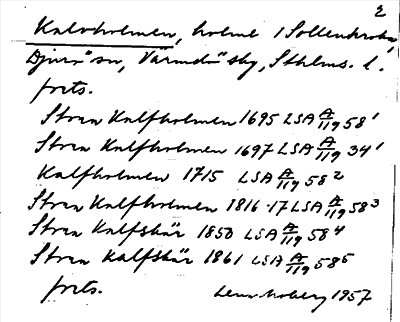 2
Kalvholmen, holme i Sollenkroka,
Djurö sn, Värmdö sky, Sthlms. l.
forts.
Stora Kalfholmen 1695 LSA A/119 58 1
Stora Kalfholmen 1697 LSA A/119 34 1
Kalfholmen 1715 LSA A/119 58 2
Stora Kalfholmen 1816-17 LSA A/119 58 3
Stora Kalfskär 1850 LSA A/119 58 4
Stora Kalfskär 1861 LSA A/119 58 5
forts. Lena Moberg 1957